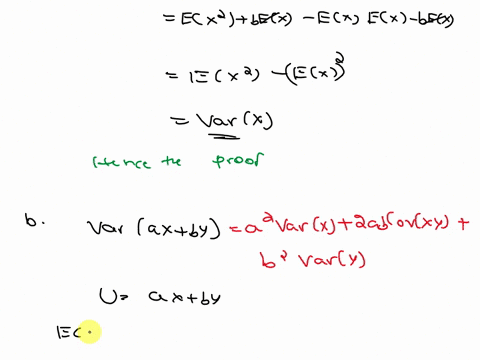 = E(x²) + bE(x) - E(x) E(x) - bE(x)
= E(x²) - (E(x))²
= Var(x)
Hence the proof
b. Var(ax+by) = a² Var(x) + 2ab Cov(xy) +
b² Var(y)
U = ax+by
E(